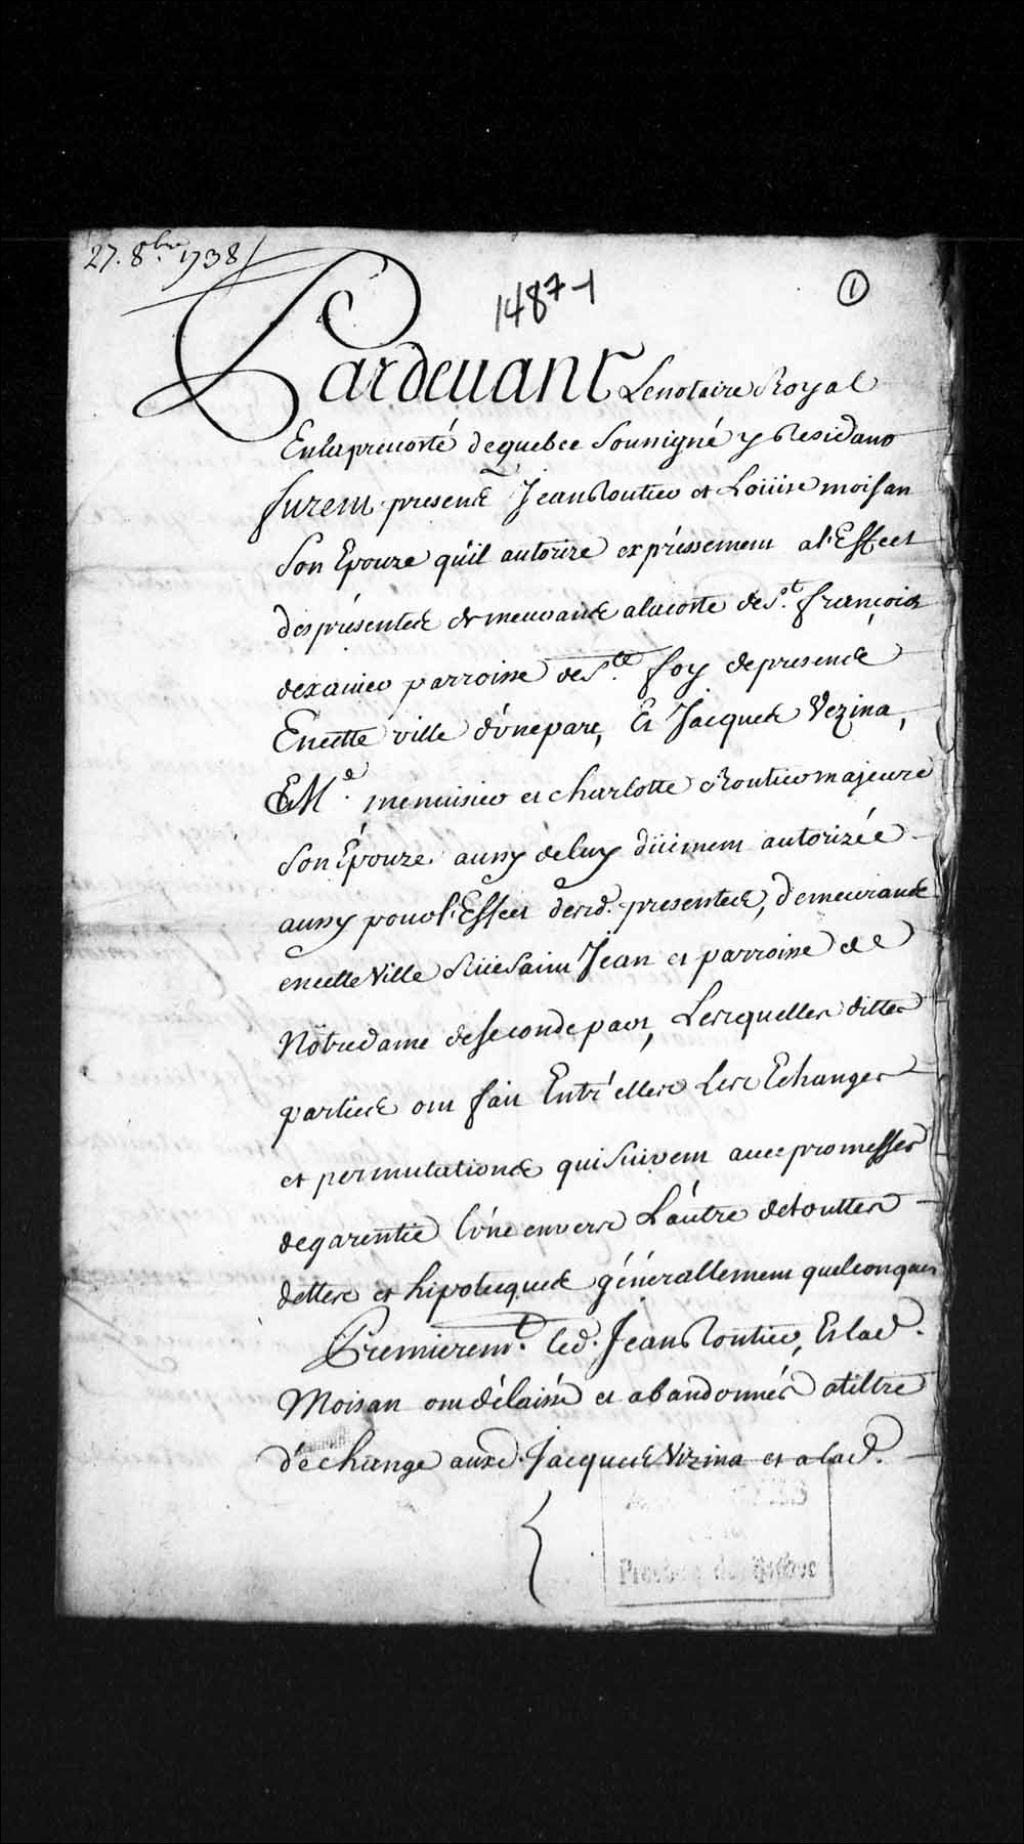 27. 8bre 1738/
1487-1
1
Pardevant Lenotaire Royal
Enlaprevosté dequebec Soussigné y Residant
furent presents Jean Routier et Loüise moisan
Son Epouze qu'il autorize expréssement al'Effect
des présentes demeurants alacoste de St. françois
dexavier parroisse de Ste. foy depresents
Encette ville d'únepart, Et Jacques Vezina,
Me. menuisier et charlotte Routier majeure
Son Épouze aussy deluy düement autorizée
aussy pour l'Effect desd. presentes, demeurants
encette Ville Rüe Saint Jean et parroisse de
Nôtredame deseconde part, Lesquelles dittes
parties ont fait Entr'elles Les Echanges
et permutations qui Suivent avec promesses
degarentie l'úne envers L'aútre detouttes
dettes et hipotecques générallement quelconques
Premieremt. led. Jean Routier, Et lad.
Moisan ont délaissé et abandonnés atiltre
d'échange auxd. Jacques Vezina et a lad.
Province de Québec